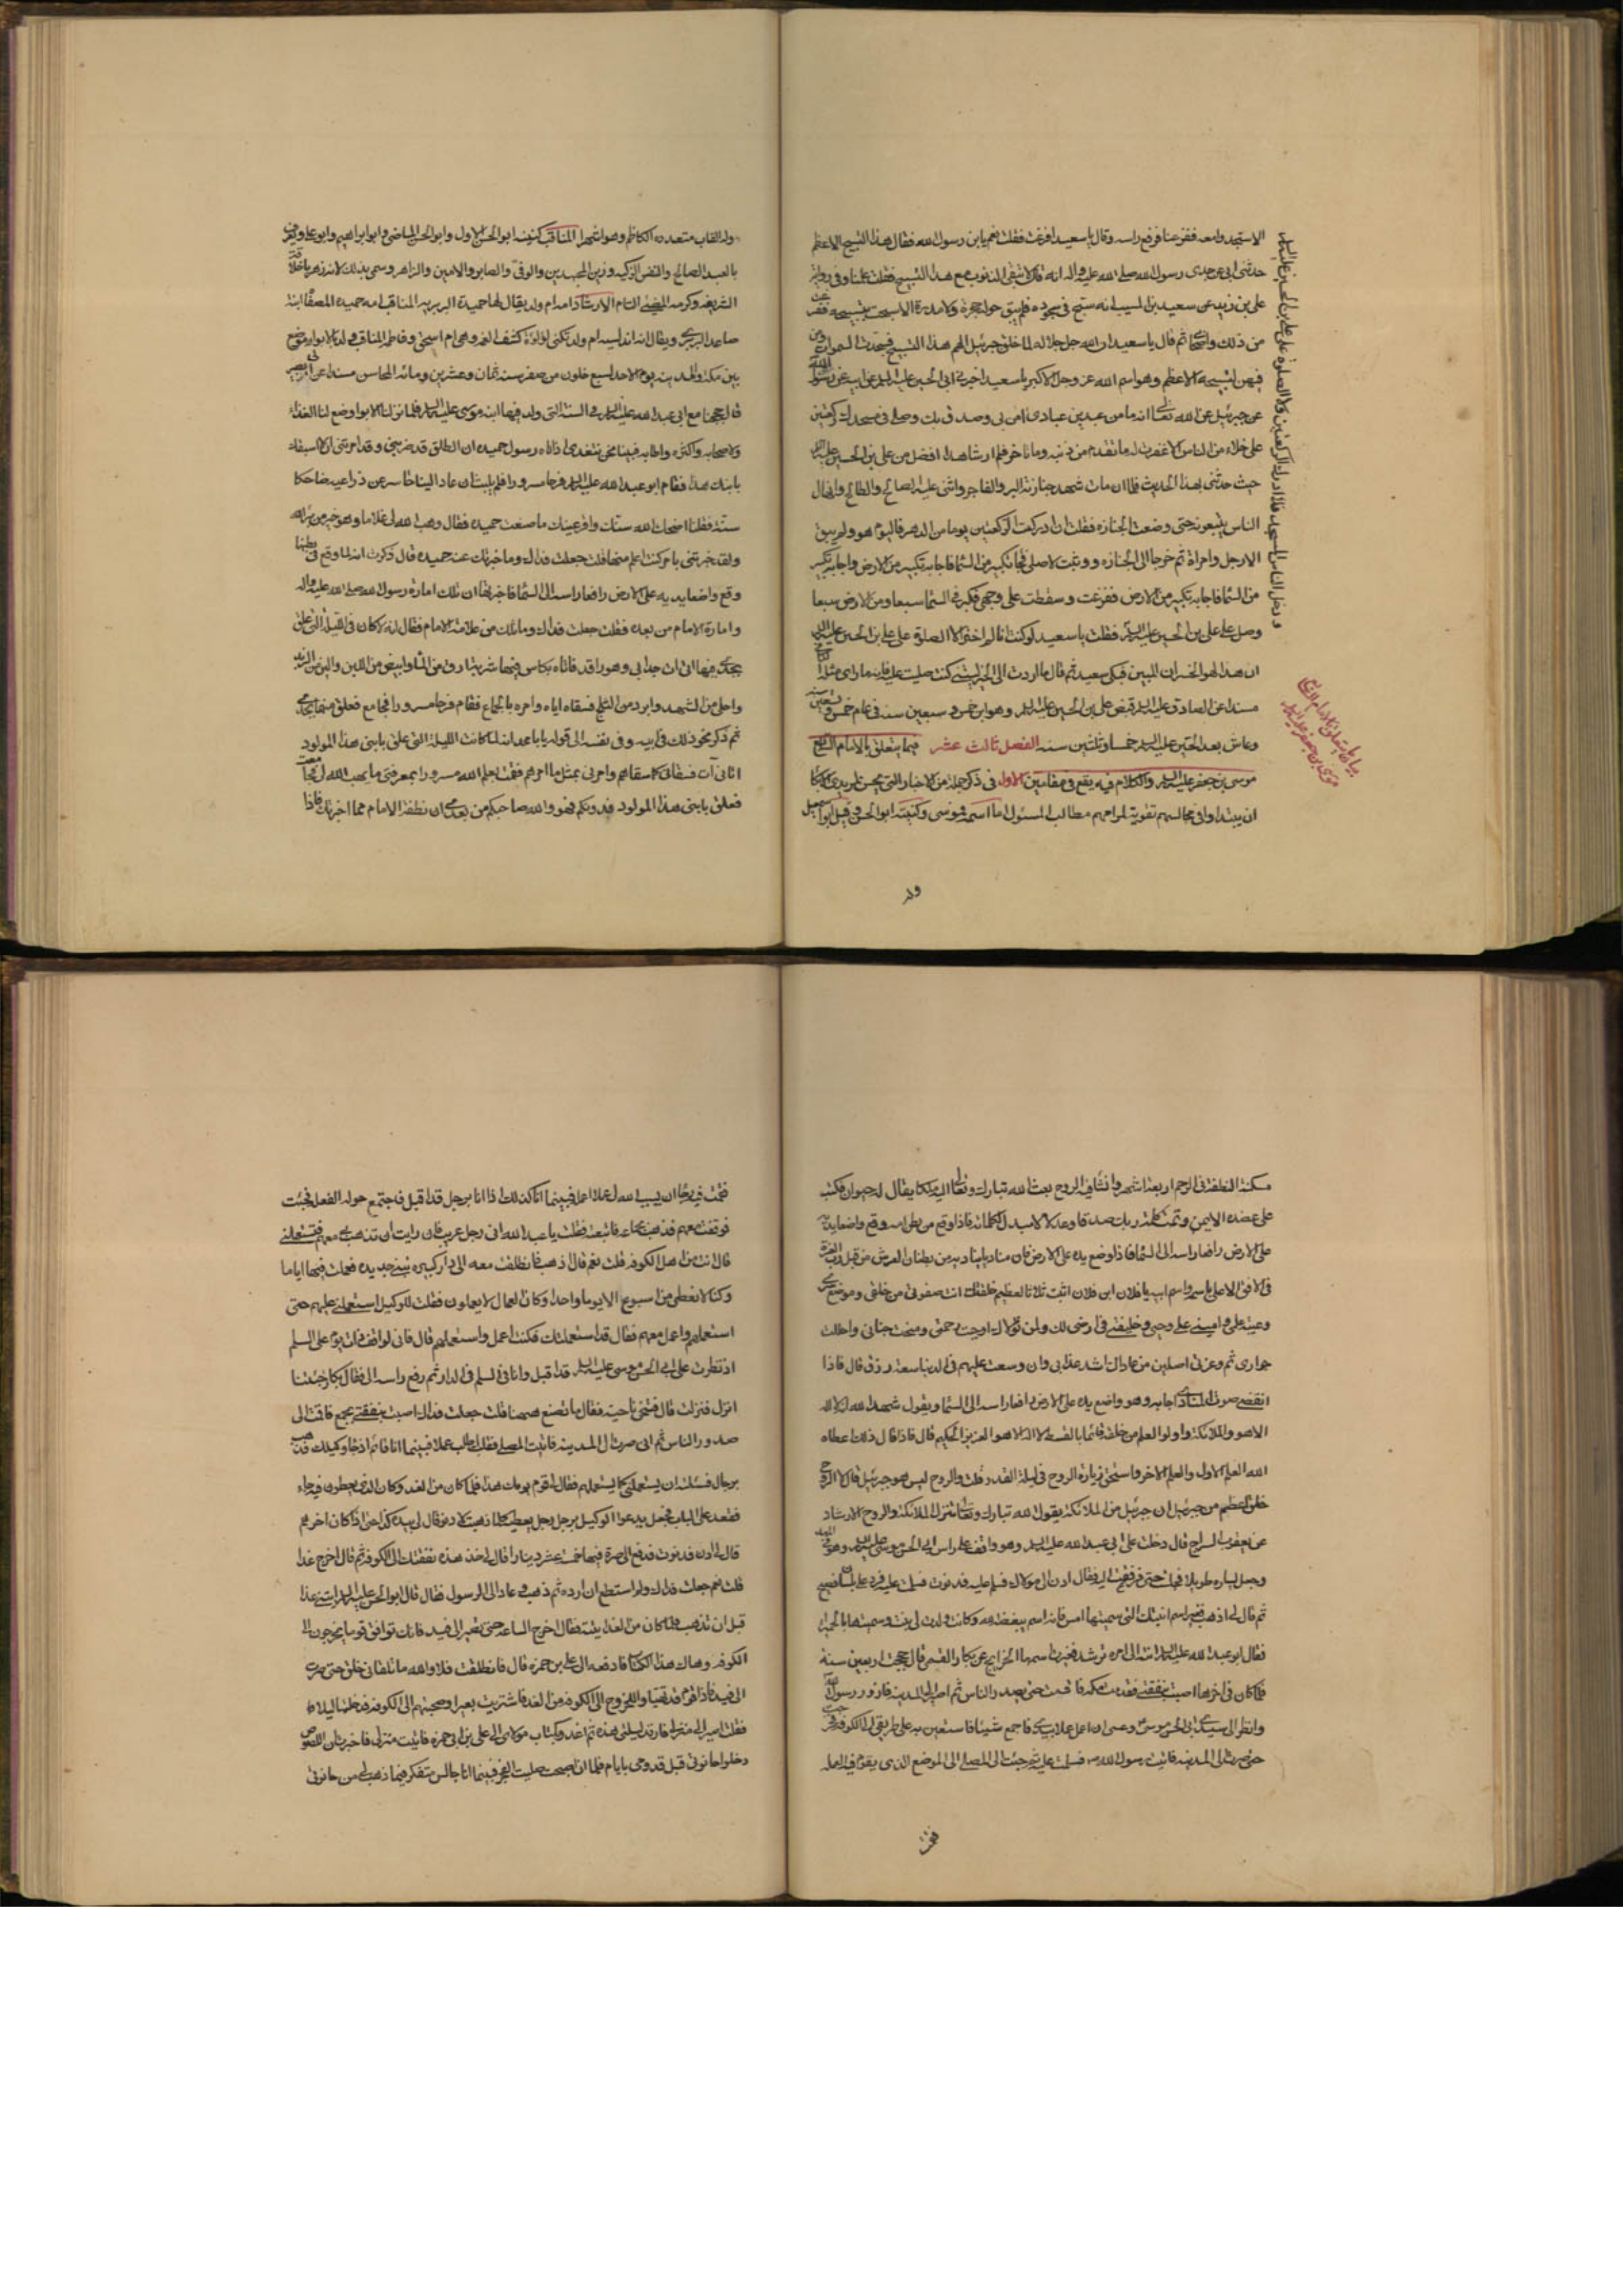 الاستجد وامعه ففزعنا فرفع راسه وقال يا سعيد افزعت فقلت نعم يابن رسول الله فقال هذا التسبيح الاعظم
حدثني ابي عن جدي رسول الله صلى الله عليه واله انه قال لا تبقى الذنوب مع هذا التسبيح فقلت علمنا وفي رواية
علي بن زيد عن سعيد بن المسيب انه سبح في سجوده فلم يبق حوله شجرة ولا مدرة الا سبحت بتسبيحه ففزعت
من ذلك واصحابي ثم قال يا سعيد ان الله جل جلاله لما خلق جبرئيل الهم هذا التسبيح فسبحت السموات ومن
فيهن لتسبيحه الاعظم وهو اسم الله عز وجل الاكبر يا سعيد اخبرني ابي الحسين عليه السلم عن ابيه عن رسول الله
عن جبرئيل عن الله تعالى انه ما من عبد من عبادي امن بي وصدق بك وصلى في مسجدك ركعتين
على خلاء من الناس الا غفرت له ما تقدم من ذنبه وما تاخر فلم ار شاهدا افضل من علي بن الحسين عليه السلم
حيث حدثني بهذا الحديث فلما ان مات شهد جنازته البر والفاجر واثنى عليه الصالح والطالح وانهال
الناس يتبعونه حتى وضعت الجنازة فقلت ان ادركت الركعتين يوما من الدهر فاليوم هو ولم يبق
الا رجل وامراة ثم خرجا الى الجنازة ووثبت لاصلي فجاء تكبير من السماء فاجابه تكبير من الارض واجابه تكبير
من السماء فاجابه تكبير من الارض ففزعت وسقطت على وجهي فكبر في السماء سبعا ومن الارض سبعا
وصلى على علي بن الحسين عليه السلم فقلت يا سعيد لو كنت انا لم اختر الا الصلوة على علي بن الحسين عليه السلم
ان هذا لهو الخسران المبين فبكى سعيد ثم قال ما اردت الا الخير ليتني كنت صليت عليه فانه ما راى مثله
مسندا عن الصادق عليه السلم قبض علي بن الحسين عليه السلم وهو ابن خمس و سبعين سنة في عام خمس وتسعين سنة
وعاش بعد الحسين عليه السلم خمسا وثلثين سنه الفصل ثالث عشر فيما يتعلق بالامام السابع
موسى بن جعفر عليه السلم والكلام فيه يقع في مقامين الاول في ذكر جملة من الاخبار التي يحسن لمريدي
ان يبتداوا في مجالسهم تقوية لمرامهم مطالب المسئول اما اسمه فموسى وكنيته ابو الحسن وقيل ابو اسمعيل
ودخل الناس المسجد فلا ادرك الركعتين ولا الصلوة على علي بن الحسين عليه السلم
بيان ما يتعلق بالامام السابع
موسى بن جعفر عليه السلم
وله
وله القاب متعدده الكاظم وهو اشهرها المناقب كنيته ابو الحسن الاول وابو الحسن الماضي وابو ابراهيم وابو علي ويعرف
بالعبد الصالح والنفس الزكيه وزين المجتهدين والوفي والصابر والامين والزاهر وسمي بذلك لانه زهر باخلاقه
الشريفه وكرمه المضيئ التام الارشاد امه ام ولد يقال لها حميدة البربريه المناقب امه حميده المصفاة ابنة
صاعد البربري ويقال انها اندلسيه ام ولد تكنى لؤلؤة كشف الغمه وهي ام اسحق وفاطمه المناقب ولد بالابواء موضع
بين مكة والمدينه يوم الاحد لسبع خلون من صفر سنة ثمان وعشرين ومائه المحاسن مسندا عن ابي بصير
قال حججنا مع ابي عبد الله عليه السلم في السنة التي ولد فيها ابنه موسى عليه السلم فلما نزلنا الابوا وضع لنا الغداء
ولاصحابه واكثره واطابه فبينا نحن نتغدى اذ اتاه رسول حميده ان الطلق قد ضربني وقد امرتني ان لا اسبقك
بابنك هذا فقام ابو عبد الله عليه السلم فرحا مسرورا فلم يلبث ان عاد الينا حاسرا عن ذراعيه ضاحكا
سنه فقلنا اضحك الله سنك واقر عينك ما صنعت حميده فقال وهب الله لي غلاما وهو خير من براه
ولقد خبرتني بامر كنت اعلم منها قلت جعلت فداك وما خبرتك عنه حميده قال ذكرت انه لما وقع من بطنها
وقع واضعا يديه على الارض رافعا راسه الى السماء فاخبرتها ان تلك امارة رسول الله صلى الله عليه واله
وامارة الامام من بعده فقلت جعلت فداك وما تلك من علامة الامام فقال انه لما كان في الليلة التي علق
بجدي فيها اتى ات جد ابي وهو راقد فاتاه بكاس فيها شربة ارق من الماء وابيض من اللبن والين من الزبد
واحلى من الشهد وابرد من الثلج فسقاه اياه وامره بالجماع فقام فرحا مسرورا فجامع فعلق منها بجدي
ثم ذكر نحو ذلك في ابيه وفي نفسه الى قوله يابا محمد انه لما كانت الليلة التي علق بابني هذا المولود
اتاني آت فسقاني كما سقاهم وامرني بمثل ما امرهم فقمت بعلم الله مسرورا بمعرفتي ما يهب الله لي فجامعت
فعلق بابني هذا المولود فدونكم فهو والله صاحبكم من بعدي ان نطفة الامام مما اخبرتك فاذا
سكنت النطفة في الرحم اربعة اشهر وانشا فيه الروح بعث الله تبارك وتعالى اليه ملكا يقال له حيوان فكتب
على عضده الايمن وتمت كلمة ربك صدقا وعدلا لا مبدل لكلماته فاذا وقع من بطن امه وقع واضعا يديه
على الارض رافعا راسه الى السماء فاذا وضع يده على الارض فان مناديا يناديه من بطنان العرش من قبل رب العزة
في الافق الاعلى باسمه واسم ابيه يا فلان ابن فلان اثبت ثلاثا لعظيم خلقتك انت صفوتي من خلقي وموضع سري
وعيبة علمي واميني على وحيي وخليفتي في ارضي لك ولمن تولاك اوجبت رحمتي ومنحت جناني واحللت
جواري ثم وعزتي لاصلين من عاداك اشد عذابي وان وسعت عليهم في الدنيا سعة رزقي قال فاذا
انقضى صوت المنادي اجابه وهو واضع يده على الارض رافعا راسه الى السماء ويقول شهد الله انه لا اله
الا هو والملائكة واولوا العلم قائما بالقسط لا اله الا هو العزيز الحكيم قال فاذا قال ذلك اعطاه
الله العلم الاول والعلم الاخر واستحق زيارة الروح في ليلة القدر قلت والروح ليس هو جبرئيل قال لا الروح
خلق اعظم من جبرئيل ان جبرئيل من الملائكة يقول الله تبارك وتعالى تنزل الملائكة والروح الارشاد
عن يعقوب السراج قال دخلت على ابي عبد الله عليه السلم وهو واقف على راس ابي الحسن موسى عليه السلم وهو في المهد
وجعل يساره طويلا فجلست حتى فرغ فقمت اليه فقال ادن الى مولاك فسلم عليه فدنوت فسلمت عليه فرد علي بلسان فصيح
ثم قال لي اذهب فغير اسم ابنتك التي سميتها امس فانه اسم يبغضه الله وكانت ولدت لي بنت وسميتها بالحميراء
فقال ابو عبد الله عليه السلم انته الى امره ترشد فغيرت اسمها الخرايج عن بكار القمي قال حججت اربعين سنة
فلما كان في اخرها اصبت بنفقتي فقدمت مكه فاقمت حتى يصدر الناس ثم اصير الى المدينه فازور رسول الله
وانظر الى سيدي ابي الحسن موسى وعسى ان اعمل عملا بيدي فاجمع شيئا فاستعين به على طريقي الى الكوفه فخرجت
حتى صرت الى المدينه فاتيت رسول الله فسلمت عليه ثم جئت الى المصلى الى الموضع الذي يقوم فيه العمله
فقمت
فقمت فيه رجاء ان يسبب الله لي عملا اعمله فبينما انا كذلك اذا انا برجل قد اقبل فاجتمع حوله الفعله فجئت
فوقفت معهم فذهب بجماعة فاتبعته فقلت يا عبد الله اني رجل غريب فان رايت ان تذهب بي معهم فتستعملني
قال انت من اهل الكوفه قلت نعم قال اذهب فانطلقت معه الى دار كبيرة تبنى جديدة فعملت فيها اياما
وكنا لا نعطى من اسبوع الا يوما واحدا وكان العمال لا يعملون فقلت للوكيل استعملني عليهم حتى
استعملهم واعمل معهم فقال قد استعملتك فكنت اعمل واستعملهم قال فاني لواقف ذات يوم على السلم
اذ نظرت الى ابي الحسن موسى عليه السلم قد اقبل وانا في السلم في الدار ثم رفع راسه الي فقال بكار جئتنا
انزل فنزلت قال فتنحى ناحية فقال ما تصنع ههنا قلت جعلت فداك اصبت بنفقتي بجمع فاقمت الى
صدور الناس ثم اني صرت الى المدينه فاتيت المصلى فقلت اطلب عملا فبينما انا قائم اذ جاء وكيلك فذهب
برجال فسئلته ان يستعملني كما يستعملهم فقال لي قم يومك هذا فلما كان من الغد وكان اليوم الذي يعطون فيه جاء
فقعد على الباب فجعل يدعوا الوكيل برجل رجل يعطيه كلما ذهبت لادنو قال لي بيده كذا حتى اذا كان اخرهم
قال لي ادن فدنوت فدفع الي صرة فيها خمسة عشر دينارا قال لي خذ هذه نفقتك الى الكوفه ثم قال اخرج غدا
قلت نعم جعلت فداك ولم استطع ان ارده ثم ذهب وعاد الي الرسول فقال قال ابو الحسن عليه السلم ائتني غدا
قبل ان تذهب فلما كان من الغد اتيته فقال اخرج الساعة حتى تصير الى فيد فانك توافق قوما يخرجون الى
الكوفه وهاك هذا الكتاب فادفعه الى علي بن حمزه قال فانطلقت فلا والله ما تلقاني خلق حتى صرت
الى فيد فاذا قوم قد تهيئوا للخروج الى الكوفه من الغد فاشتريت بعيرا وصحبتهم الى الكوفه فدخلتها ليلا
فقلت اصير الى منزلي فارقد ليلتي هذه ثم اغدو بكتاب مولاي الى علي بن ابي حمزه فاتيت منزلي فاخبرت ان اللصوص
دخلوا حانوتي قبل قدومي بايام فلما ان اصبحت صليت الفجر فبينما انا جالس متفكر فيما ذهب لي من حانوتي